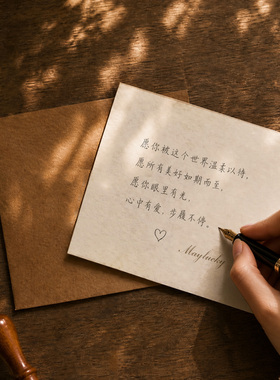 愿你被这个世界温柔以待，
愿所有美好如期而至，
愿你眼里有光，
心中有爱，步履不停。
Maylucky